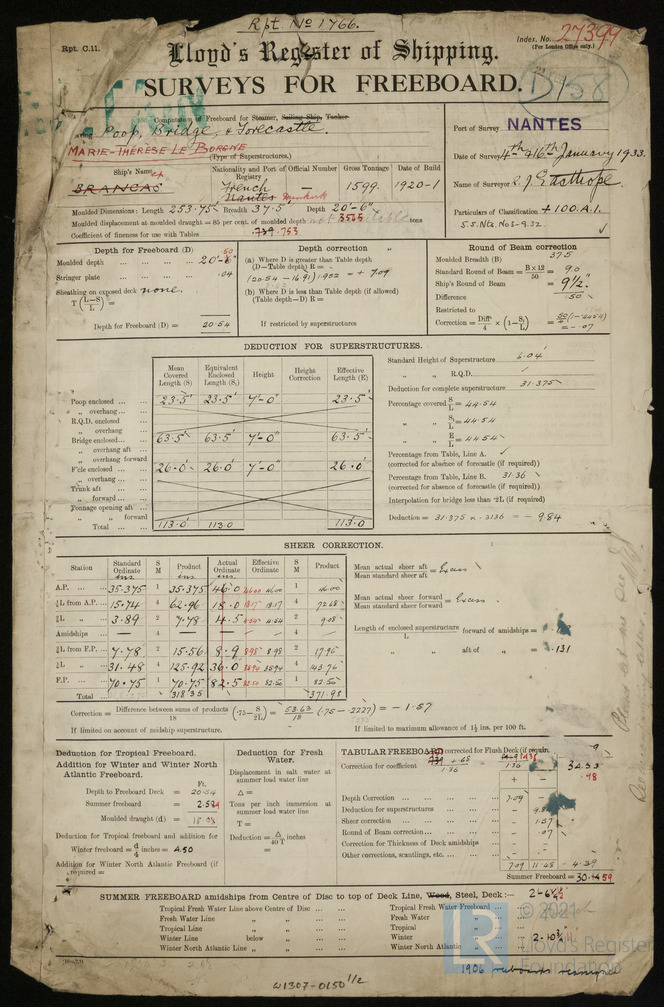 Rpt No 1766.
Rpt. C.11.
Index. No. 27399
(For London Office only.)
Lloyd's Register of Shipping.
SURVEYS FOR FREEBOARD.
D158
Computation of Freeboard for Steamer, Sailing Ship, Tanker
having Poop, Bridge, & Forecastle.
(Type of Superstructures.)
MARIE-THÉRÈSE LE BORGNE
Ship's Name
BRANCAS
Nationality and Port of Registry
French
Nantes Dunkirk
Official Number
—
Gross Tonnage
1599.
Date of Build
1920-1
Port of Survey NANTES
Date of Survey 4th & 16th January 1933.
Name of Surveyor E. J. Easthope.
Particulars of Classification +100.A.1.
S.S. Nts. No3-9.32
Moulded Dimensions: Length 253.75 Breadth 37.5 Depth 20'-6"
Moulded displacement at moulded draught = 85 per cent. of moulded depth 3565 tons
Coefficient of fineness for use with Tables .739 .753
Depth for Freeboard (D)
Moulded depth ... 20'-6" 50
Stringer plate ... .04
Sheathing on exposed deck none.
T (L–S / L) =
Depth for Freeboard (D) = 20.54
Depth correction
(a) Where D is greater than Table depth
(D–Table depth) R =
(20.54 - 16.91) 1.952 = + 7.09
(b) Where D is less than Table depth (if allowed)
(Table depth–D) R =
If restricted by superstructures
Round of Beam correction
Moulded Breadth (B) 37.5
Standard Round of Beam = B×12 / 50 = 9.0
Ship's Round of Beam = 9½"
Difference .50
Restricted to
Correction = Diff / 4 × (1– S₁ / L) = .50 / 4 (1-.4454)
= -.07
DEDUCTION FOR SUPERSTRUCTURES.
Mean Covered Length (S) Equivalent Enclosed Length (S₁) Height Height Correction Effective Length (E)
Poop enclosed ... 23.5' 23.5' 7'-0" 23.5'
„ overhang ...
R.Q.D. enclosed
„ overhang
Bridge enclosed... 63.5' 63.5' 7'-0" 63.5'
„ overhang aft ...
„ overhang forward
F'cle enclosed ... 26.0' 26.0' 7'-0" 26.0'
„ overhang ...
Trunk aft ...
„ forward ...
Tonnage opening aft ...
„ „ forward
Total ... 113.0' 113.0 113.0
Standard Height of Superstructure 6.04'
„ „ R.Q.D.
Deduction for complete superstructure 31.375
Percentage covered S / L = 44.54
„ „ S₁ / L = 44.54
„ „ E / L = 44.54
Percentage from Table, Line A.
(corrected for absence of forecastle (if required))
Percentage from Table, Line B. 31.36
(corrected for absence of forecastle (if required))
Interpolation for bridge less than ·2L (if required)
Deduction = 31.375 × .3136 = - 9.84
SHEER CORRECTION.
Station Standard Ordinate S M Product Actual Ordinate Effective Ordinate S M Product
ins. ins. ins.
A.P. ... 35.375 1 35.375 46.0 46.00 46.00 1 46.00
⅙L from A.P. ... 15.74 4 62.96 18.0 18.17 18.17 4 72.68
⅓L „ 3.89 2 7.78 4.5 4.54 4.54 2 9.08
Amidships — 4 — — — — 4 —
⅓L from F.P. ... 7.78 2 15.56 8.9 8.98 8.98 2 17.96
⅙L „ 31.48 4 125.92 36.0 35.94 35.94 4 143.76
F.P. ... 70.75 1 70.75 82.5 82.50 82.50 1 82.50
Total ... 318.35 371.98
Mean actual sheer aft / Mean standard sheer aft = Excess
Mean actual sheer forward / Mean standard sheer forward = Excess
Length of enclosed superstructure / L forward of amidships =
„ „ aft of „ = .131
Correction = Difference between sums of products / 18 (·75– S / 2L) = 53.63 / 18 (.75-.2227) = - 1.57
If limited on account of midship superstructure.
If limited to maximum allowance of 1½ ins. per 100 ft.
Deduction for Tropical Freeboard.
Addition for Winter and Winter North Atlantic Freeboard.
Ft.
Depth to Freeboard Deck = 20.54
Summer freeboard =
Moulded draught (d) =
Deduction for Tropical freeboard and addition for
Winter freeboard = d / 4 inches = 4.50
Addition for Winter North Atlantic Freeboard (if required =
Deduction for Fresh Water.
Displacement in salt water at summer load water line
Δ =
Tons per inch immersion at summer load water line
T =
Deduction = Δ / 40 T inches
=
TABULAR FREEBOARD corrected for Flush Deck (if required)
Correction for coefficient
1.36
+ –
Depth Correction ... 7.09 –
Deduction for superstructures ... –
Sheer correction ... – 1.57
Round of Beam correction ... – .07
Correction for Thickness of Deck amidships ... – –
Other corrections, scantlings, etc. ... – –
7.09 11.48 - 4.39
Summer Freeboard =
SUMMER FREEBOARD amidships from Centre of Disc to top of Deck Line, Wood, Steel, Deck :—
Tropical Fresh Water Line above Centre of Disc ...
Fresh Water Line „ „
Tropical Line „ „
Winter Line below „
Winter North Atlantic Line „ „
Tropical Fresh Water Freeboard ...
Fresh Water „
Tropical „
Winter „
Winter North Atlantic „
1906 freeboards reassigned
W1307-0150 1/2
LR
© 2021
Lloyd's Register
Foundation